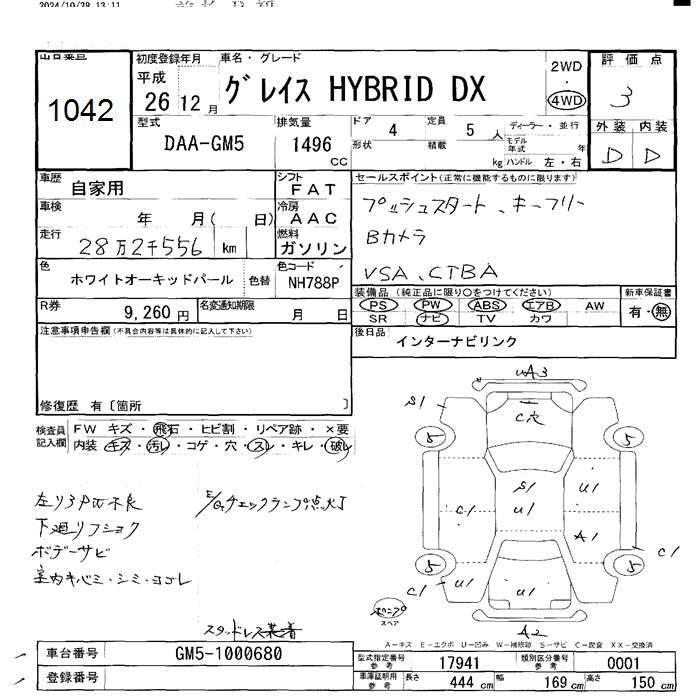 2024/10/28 13:11
初度登録年月 車名・グレード 2WD ・ 4WD 評価点
1042
平成 26 12 月 グレイス HYBRID DX 3
型式 DAA-GM5 排気量 1496 cc ドア 4 定員 5 人 ディーラー・並行
形状 積載 kg モデル年式 年 ハンドル 左・右
外装 内装
D D
車歴 自家用 シフト FAT
車検 年 月( 日) 冷房 AAC
走行 28万2千556 km 燃料 ガソリン
色 ホワイトオーキッドパール 色替 色コード NH788P
R券 9,260 円 名変通知期限 月 日
セールスポイント(正常に機能するものに限ります)
プッシュスタート、キーフリー
Bカメラ
VSA、CTBA
装備品(純正品に限り○をつけてください) 新車保証書
PS PW ABS エアB AW 有・無
SR ナビ TV カワ
後日品 インターナビリンク
注意事項申告欄(不具合内容等は具体的に記入して下さい)
修復歴 有〔箇所 〕
検査員記入欄 FW キズ・飛石・ヒビ割・リペア跡・×要
内装 キズ・汚レ・コゲ・穴・スレ・キレ・破レ
左リヤPW不良 E/gチェックランプ点灯
下廻リフショク
ボデーサビ
室内キバミ・シミ・ヨゴレ
スタッドレス装着
A3
S1 C穴
5 5
S1 U1
C1 U1 A1
C1
5 5
C1 U1 U1
スペア
A2
A-キズ E-エクボ U-凹み W-補修跡 S-サビ C-腐食 XX-交換済
車台番号 GM5-1000680
登録番号
型式指定番号 参考 17941 類別区分番号 参考 0001
車庫証明用 参考 長さ 444 cm 幅 169 cm 高さ 150 cm